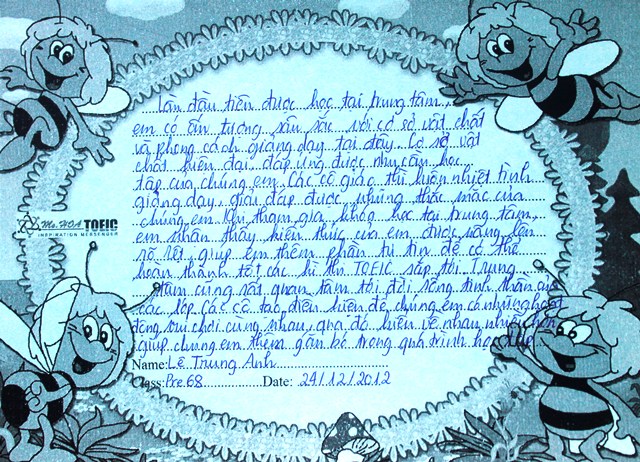 Lần đầu tiên được học tại trung tâm,
em có ấn tượng sâu sắc với cơ sở vật chất
và phong cách giảng dạy tại đây. Cơ sở vật
chất hiện đại, đáp ứng được nhu cầu học
tập của chúng em. Các cô giáo thì luôn nhiệt tình
giảng dạy, giải đáp được những thắc mắc của
chúng em. Khi tham gia khóa học tại trung tâm,
em nhận thấy kiến thức của em được nâng lên
rõ rệt, giúp em thêm phần tự tin để có thể
hoàn thành tốt các kì thi TOEIC sắp tới. Trung
tâm cũng rất quan tâm tới đời sống tinh thần của
các lớp. Các cô tạo điều kiện để chúng em có những hoạt
động vui chơi cùng nhau, qua đó hiểu về nhau nhiều hơn
giúp chúng em thêm gắn bó trong quá trình học tập.
Ms. HOA TOEIC
INSPIRATION MESSENGER
Name: Lê Trung Anh
Class: Pre 68 Date: 24/12/2012